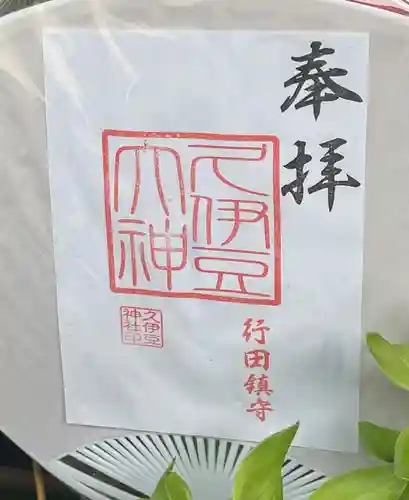 奉拝
久伊豆
大神
久伊豆
神社印
行田鎮守